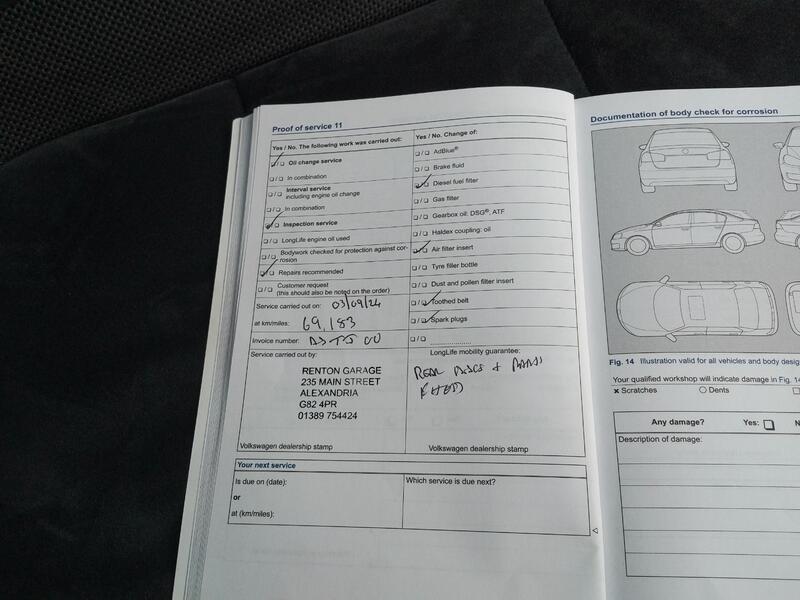 Proof of service 11
Yes / No. The following work was carried out:
❑ / ❑ Oil change service
❑ / ❑ In combination
❑ / ❑ Interval service
including engine oil change
❑ / ❑ In combination
❑ / ❑ Inspection service
❑ / ❑ LongLife engine oil used
❑ / ❑ Bodywork checked for protection against cor-
rosion
❑ / ❑ Repairs recommended
❑ / ❑ Customer request
(this should also be noted on the order)
Service carried out on: 03/09/24
at km/miles: 69,183
Invoice number:
Service carried out by:
RENTON GARAGE
235 MAIN STREET
ALEXANDRIA
G82 4PR
01389 754424
Volkswagen dealership stamp
Yes / No. Change of:
❑ / ❑ AdBlue®
❑ / ❑ Brake fluid
❑ / ❑ Diesel fuel filter
❑ / ❑ Gas filter
❑ / ❑ Gearbox oil: DSG®, ATF
❑ / ❑ Haldex coupling: oil
❑ / ❑ Air filter insert
❑ / ❑ Tyre filler bottle
❑ / ❑ Dust and pollen filter insert
❑ / ❑ Toothed belt
❑ / ❑ Spark plugs
❑ / ❑ ....................
LongLife mobility guarantee:
REAR DISCS + PADS
FITTED
Volkswagen dealership stamp
Your next service
Is due on (date):
or
at (km/miles):
Which service is due next?
Documentation of body check for corrosion
Fig. 14 Illustration valid for all vehicles and body
Your qualified workshop will indicate damage in Fig. 14
× Scratches ○ Dents
Any damage? Yes: ❑
Description of damage: